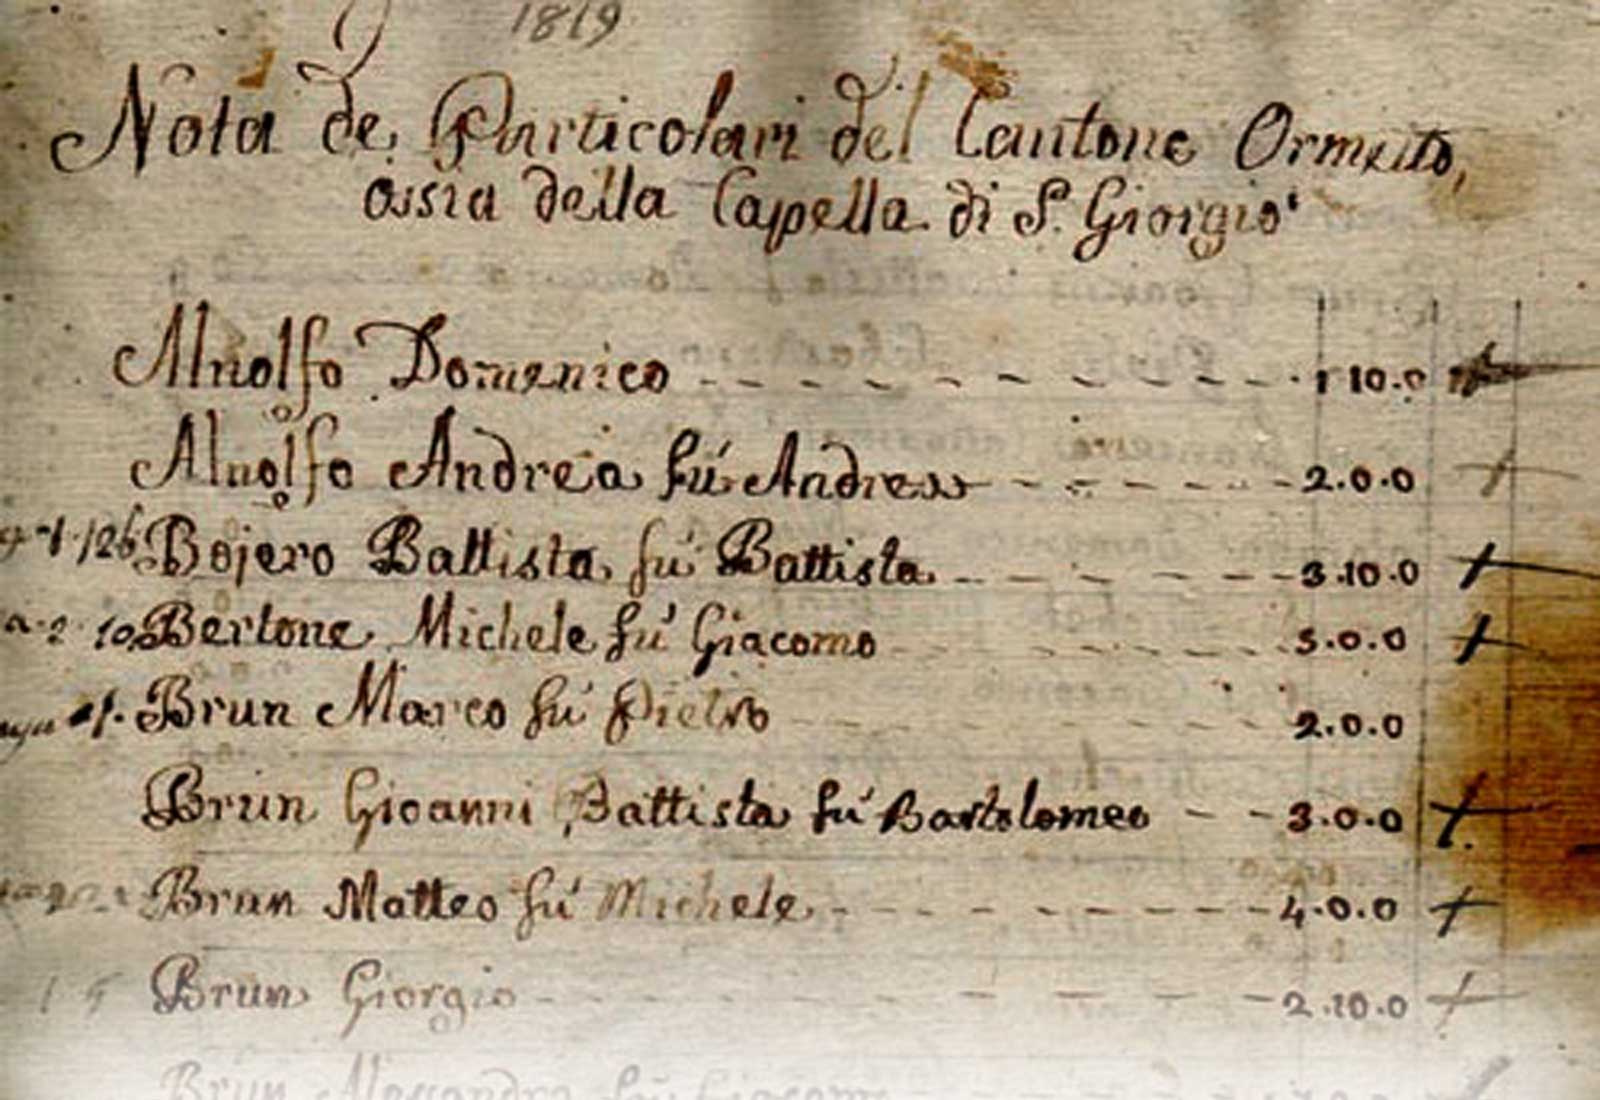 1819
Nota de Particolari del Cantone Ormeito,
ossia della Capella di S. Giorgio
Alnolfo Domenico 1 10.0
Alnolfo Andrea fú Andrea 2.0.0
Bojero Battista fú Battista 3.10.0
Bertone Michele fú Giacomo 5.0.0
Brun Marco fú Pietro 2.0.0
Brun Gioanni Battista fú Bartolomeo 3.0.0
Brun Matteo fú Michele 4.0.0
Brun Giorgio 2.10.0
Brun Alessandro fú Giacomo